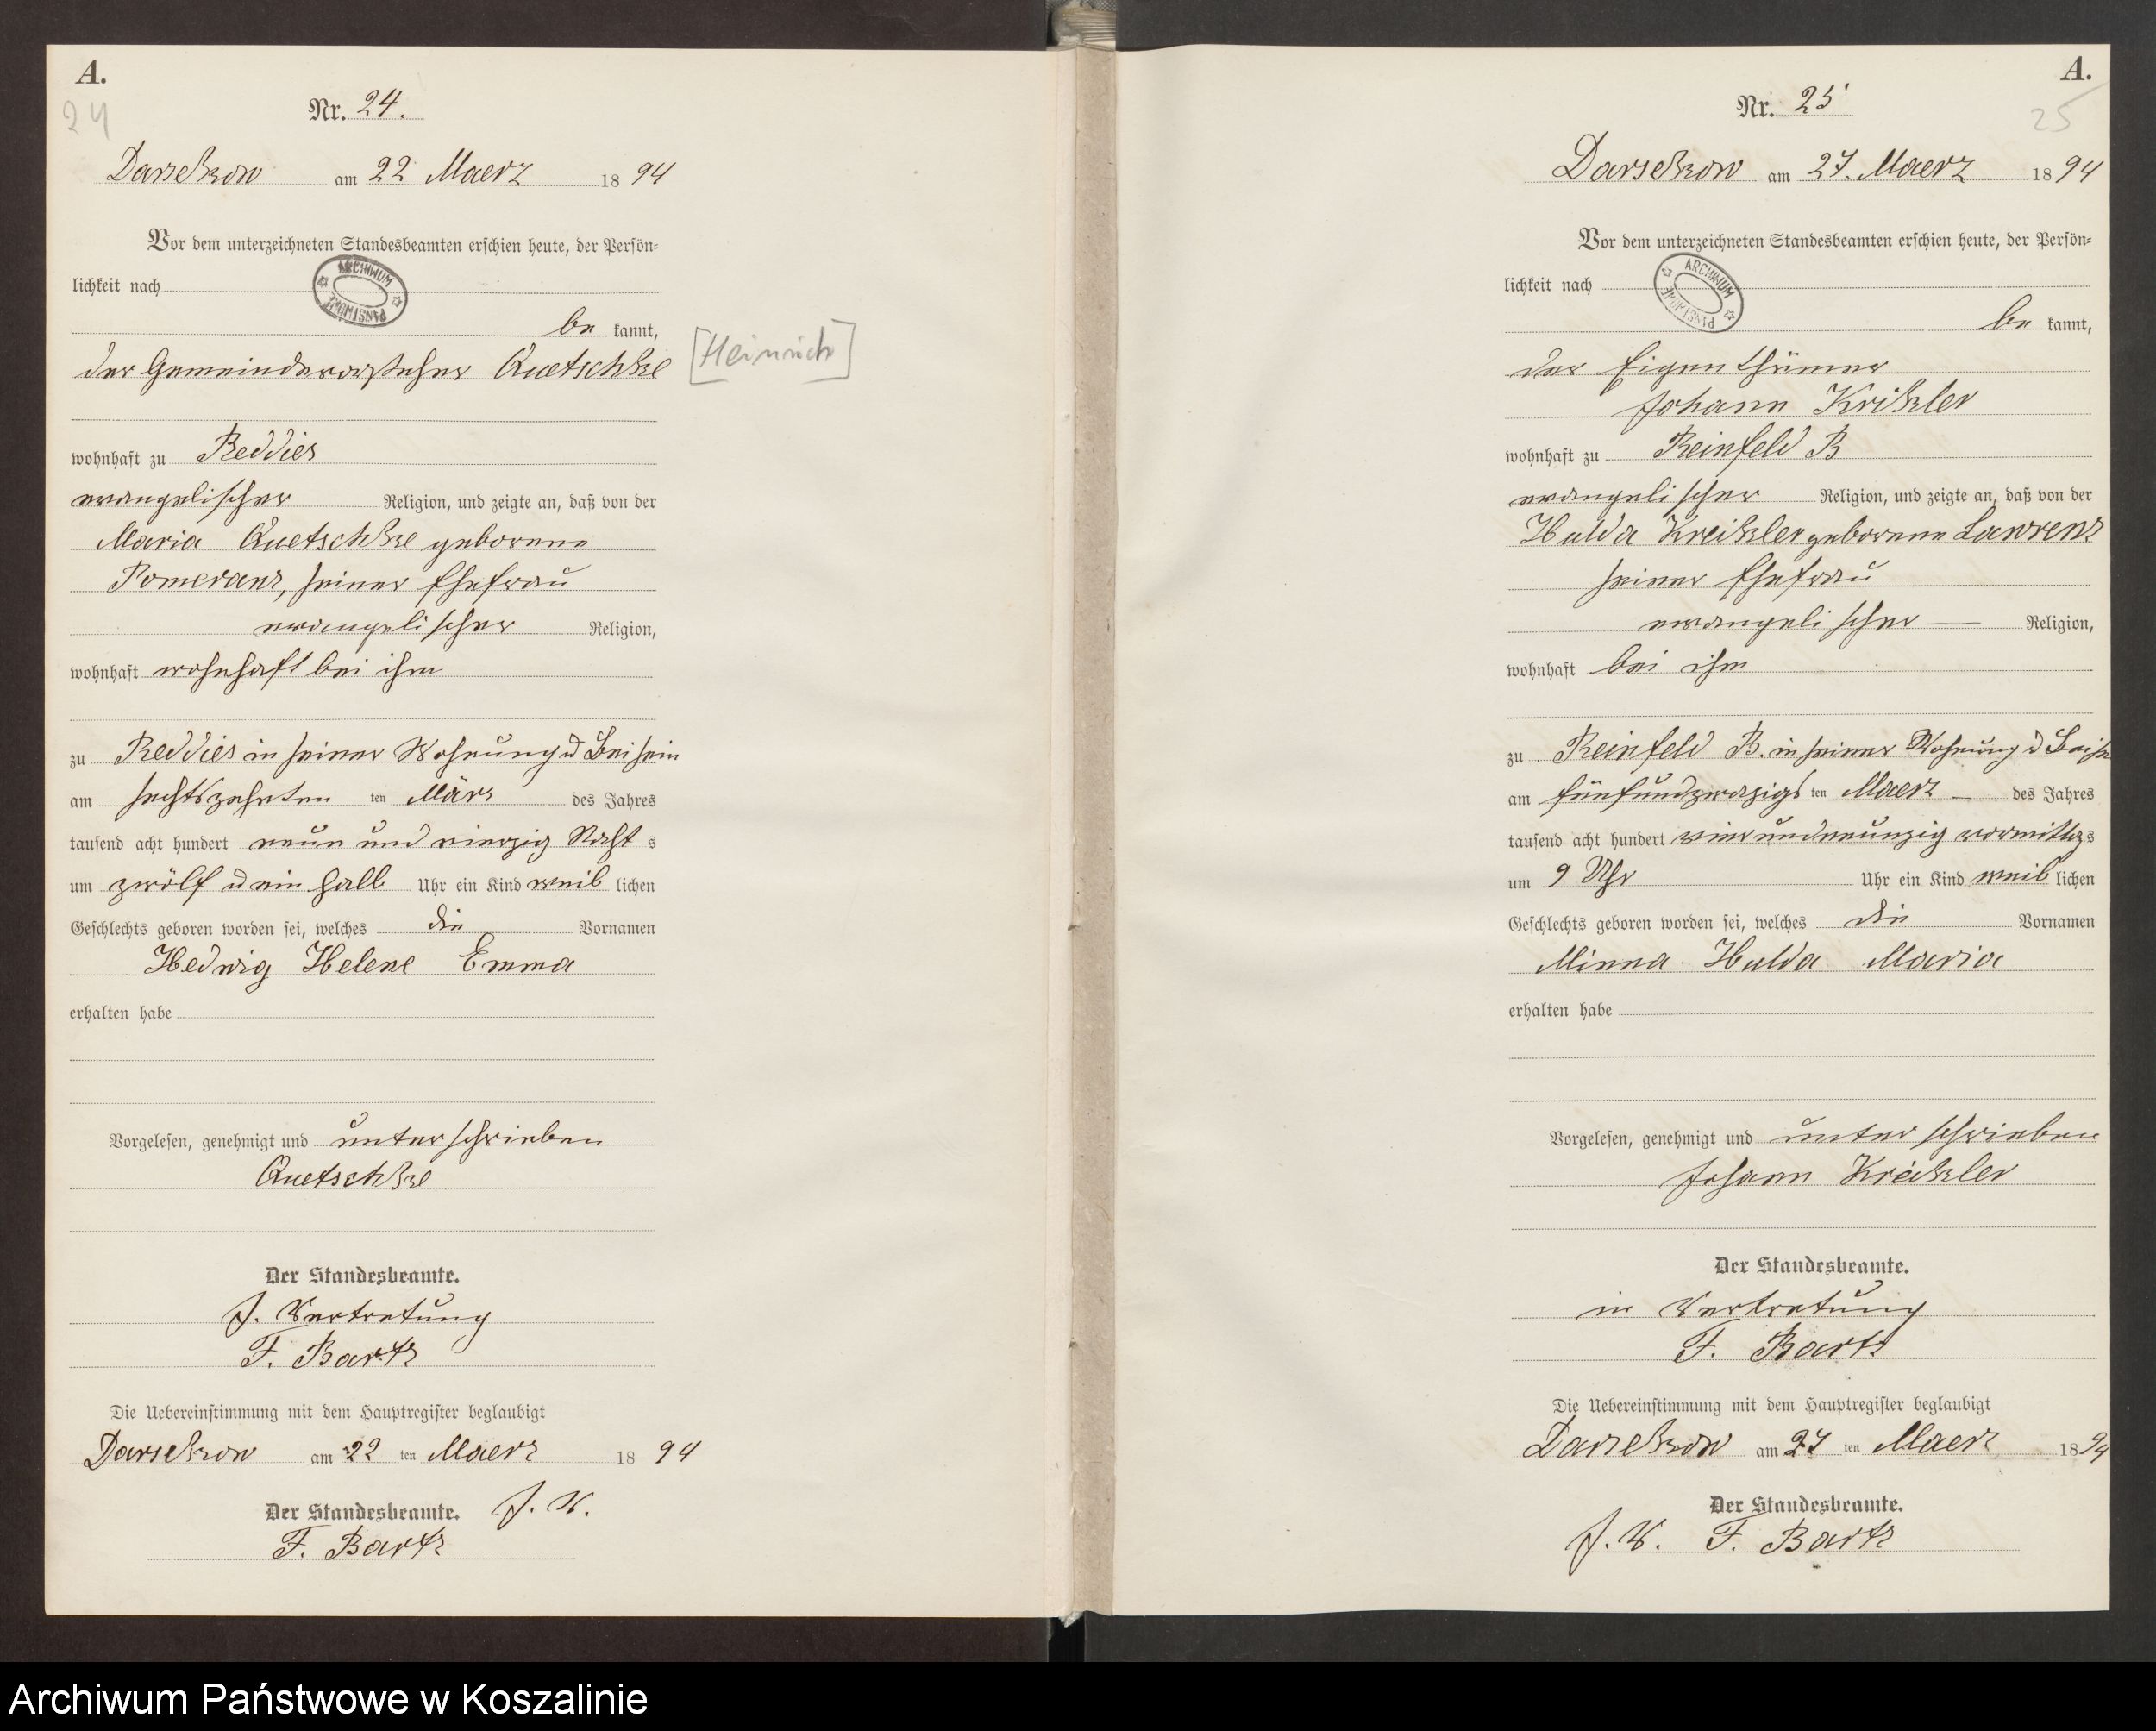 A.
24
Nr. 24.
Darsekow am 22 Maerz 1894
Vor dem unterzeichneten Standesbeamten erschien heute, der Persön-
lichkeit nach
ARCHIWUM PAŃSTWOWE
be kannt,
der Gemeindevorsteher Quetschke [Heinrich]
wohnhaft zu Reddies
evangelischer Religion, und zeigte an, daß von der
Maria Quetschke geborene
Pomeranz, seiner Ehefrau
evangelischer Religion,
wohnhaft wohnhaft bei ihm
zu Reddies in seiner Wohnung u Beisein
am sechtszehnten ten März des Jahres
tausend acht hundert neun und vierzig Nacht s
um zwölf u ein halb Uhr ein Kind weib lichen
Geschlechts geboren worden sei, welches die Vornamen
Hedwig Helene Emma
erhalten habe
Vorgelesen, genehmigt und unterschrieben
Quetschke
Der Standesbeamte.
J. Vertretung
F. Bartz
Die Uebereinstimmung mit dem Hauptregister beglaubigt
Darsekow am 22 ten Maerz 1894
Der Standesbeamte. J. V.
F. Bartz
A.
25
Nr. 25
Darsekow am 27. Maerz 1894
Vor dem unterzeichneten Standesbeamten erschien heute, der Persön-
lichkeit nach
ARCHIWUM PAŃSTWOWE
be kannt,
der Eigenthümer
Johann Krikler
wohnhaft zu Reinfeld B
evangelischer Religion, und zeigte an, daß von der
Hulda Kreikler geborene Lawrenz
seiner Ehefrau
evangelischer — Religion,
wohnhaft bei ihm
zu Reinfeld B. in seiner Wohnung u
am fünfundzwazigs ten Maerz — des Jahres
tausend acht hundert vierundneunzig vormittag s
um 9 Uhr Uhr ein Kind weib lichen
Geschlechts geboren worden sei, welches die Vornamen
Minna Hulda Maria
erhalten habe
Vorgelesen, genehmigt und unterschrieben
Johann Kreikler
Der Standesbeamte.
in Vertretung
F. Bartz
Die Uebereinstimmung mit dem Hauptregister beglaubigt
Darsekow am 27 ten Maerz 1894
Der Standesbeamte.
J. V. F. Bartz
Archiwum Państwowe w Koszalinie